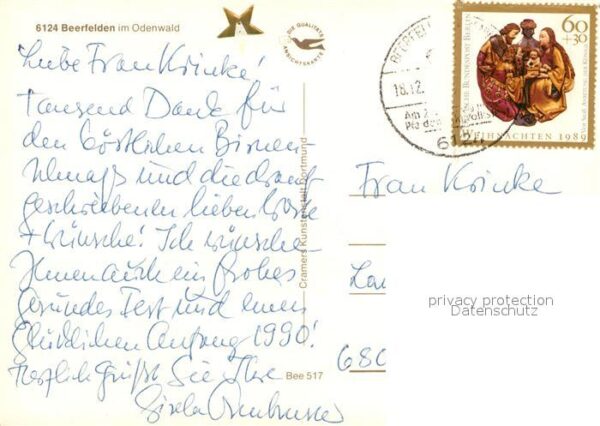 6124 Beerfelden im Odenwald
DIE QUALITÄTS
ANSICHTSKARTE
Liebe Frau Krinke!
Tausend Dank für
den köstlichen Birnen-
schnaps und die drauf
geschriebenen lieben Grüße
+ Wünsche! Ich wünsche
Ihnen auch ein frohes
gesundes Fest und einen
glücklichen Anfang 1990!
Herzlich grüßt Sie Ihre
Gisela
Cramers Kunstanstalt Dortmund
Bee 517
18.12.
6124
60
+30
DEUTSCHE BUNDESPOST BERLIN
WEIHNACHTEN 1989
Frau Krinke
680
privacy protection
Datenschutz